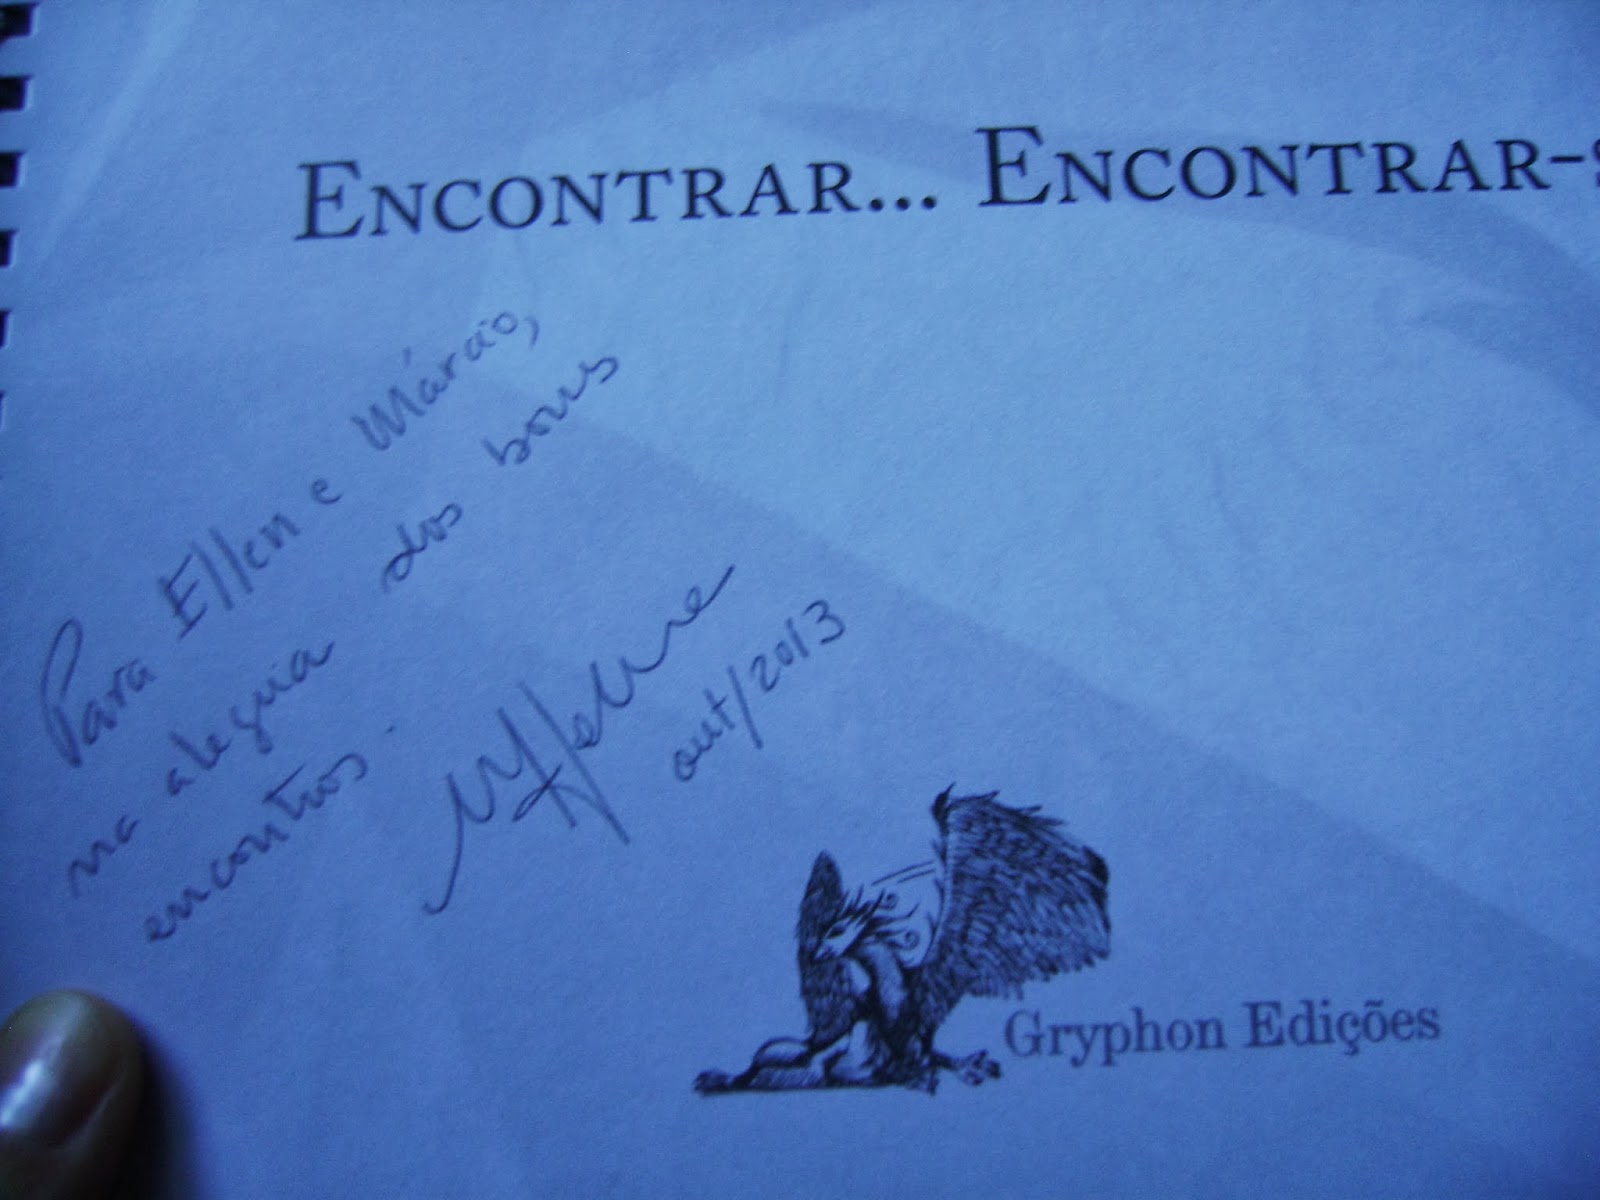 ENCONTRAR... ENCONTRAR-S
Para Ellen e Márcio,
na alegria dos bons
encontros.
out/2013
Gryphon Edições